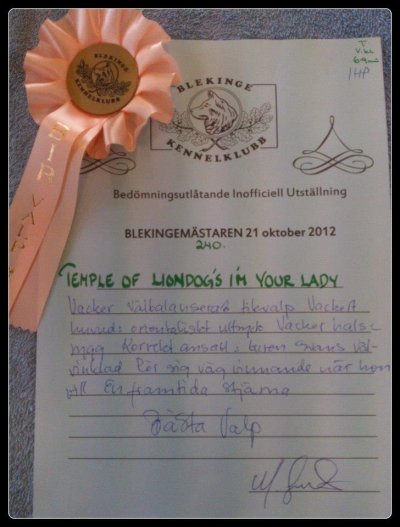 BLEKINGE
KENNELKLUBB
BIR VALP
BLEKINGE
KENNELKLUBB
T
1HP
Bedömningsutlåtande Inofficiell Utställning
BLEKINGEMÄSTAREN 21 oktober 2012
240.
TEMPLE OF LIONDOG'S I'M YOUR LADY
Vacker välbalanserad tikvalp Vackert
huvud orientaliskt uttryck Vacker hals
rygg Korrekt ansatt buren svans väl-
vinklad Rör sig vägvinnande när hon
vill En framtida stjärna
Bästa Valp